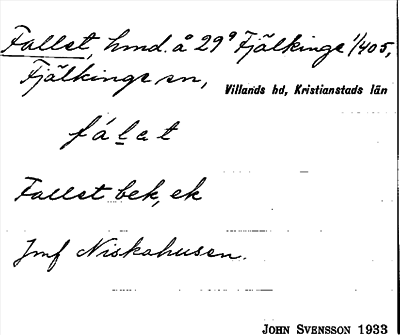 Fallet, hmd. å 29⁹ Fjälkinge 1/405,
Fjälkinge sn,
Villands hd, Kristianstads län
fálet
Fallet bek, ek
Jmf Niskahusen.
JOHN SVENSSON 1933